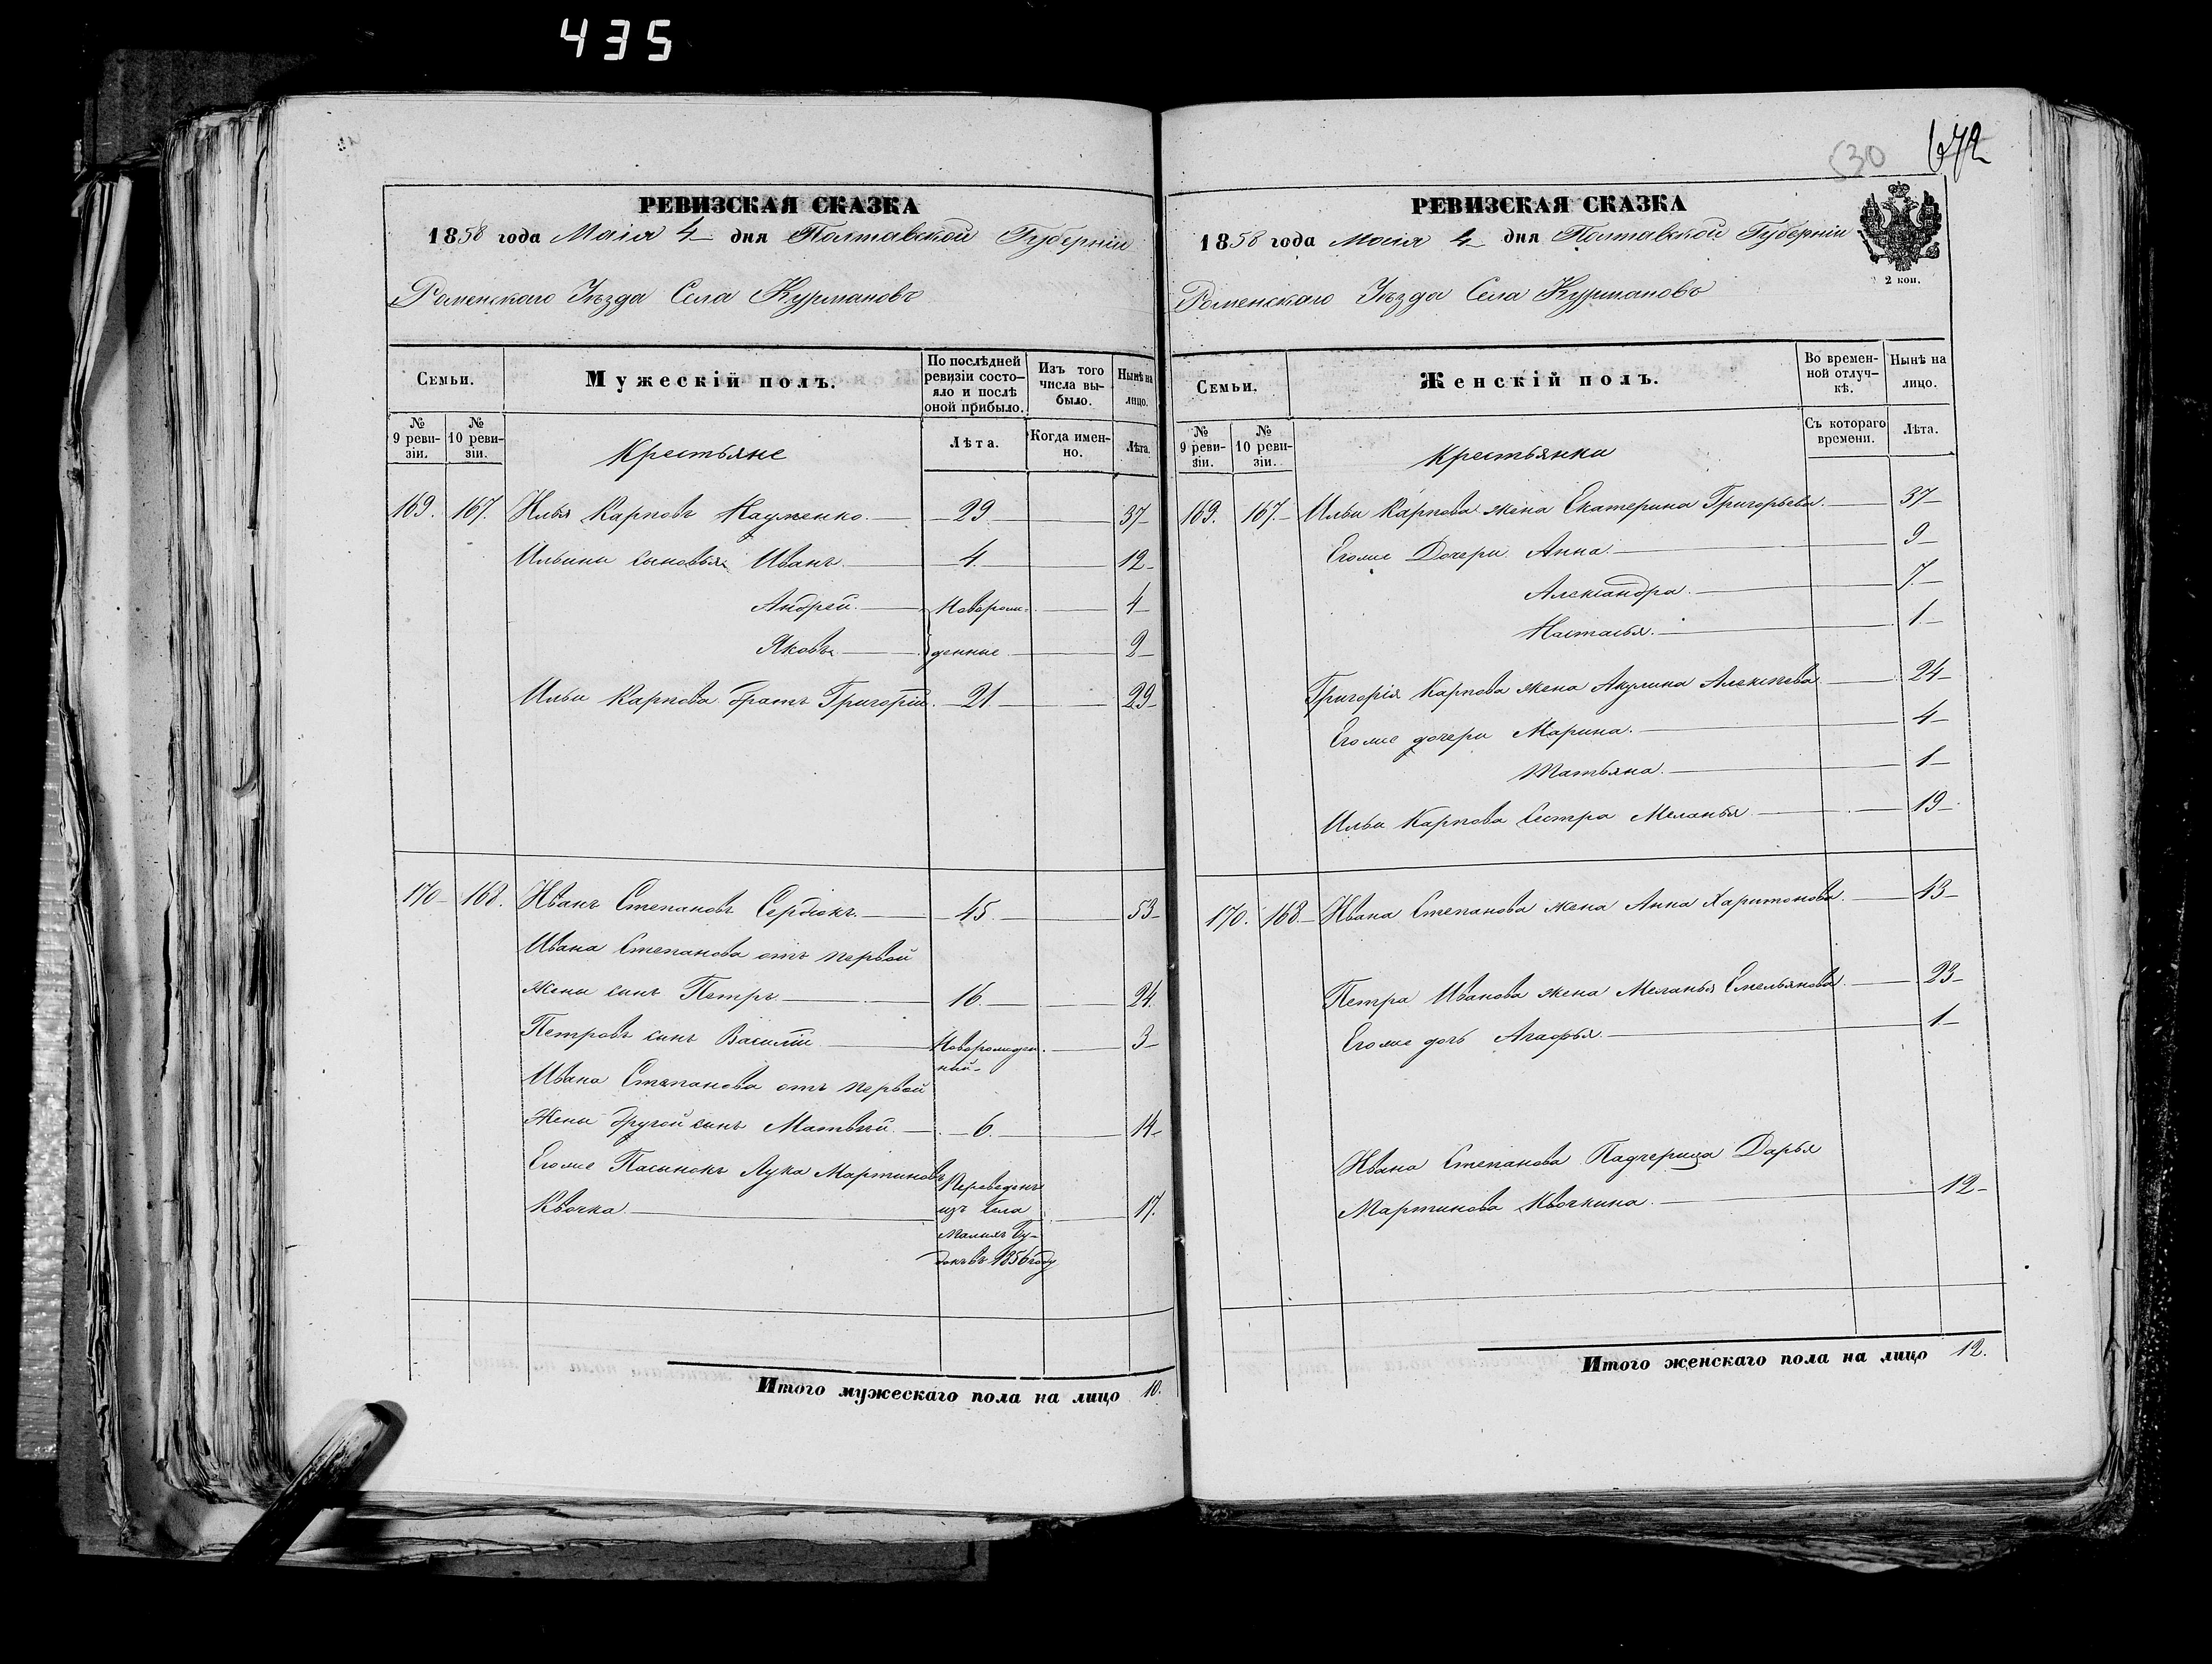 435
РЕВИЗСКАЯ СКАЗКА
1858 года Маія 4 дня Полтавской Губерніи
Роменскаго Уѣзда Села Курмановъ
Семьи.
Мужескій полъ.
По послѣдней ревизіи состо-
яло и послѣ
оной прибыло.
Изъ того
числа вы-
было.
Нынѣ на
лицо.
№
9 реви-
зіи.
№
10 реви-
зіи.
Крестьяне
Лѣта.
Когда имен-
но.
Лѣта.
169. 167. Илья Карповъ Науменко 29 37
Ильини сыновья Иванъ 4 12
Андрей Новорож- 4
Яковъ денные 2
Ильи Карпова братъ Григорій 21 29
170 168. Иванъ Степановъ Сердюкъ 45 53
Ивана Степанова отъ первой
жены сынъ Петръ 16 24
Петровъ сынъ Василій Новорожден- 3
ный
Ивана Степанова отъ первой
жены другой сынъ Матвѣй 6 14
Егоже Пасынокъ Лука Мартиновъ Переведенъ
Квочка из села 17
Малихъ Бу-
докъ въ 1856 году
Итого мужескаго пола на лицо 10.
530 672
РЕВИЗСКАЯ СКАЗКА
1858 года Маія 4 дня Полтавской Губерніи
2 коп.
Роменскаго Уѣзда Села Курмановъ
Семьи.
Женскій полъ.
Во времен-
ной отлуч-
кѣ.
Нынѣ на
лицо.
№
9 реви-
зіи.
№
10 реви-
зіи.
Крестьянки
Съ котораго
времени.
Лѣта.
169. 167. Ильи Карпова жена Екатерина Григорьева 37
Егоже Дочери Анна 9
Александра 7
Настасья 1
Григорія Карпова жена Акулина Алексѣева 24
Егоже дочери Марина 4
Татьяна 1
Ильи Карпова сестра Меланья 19
170. 168. Ивана Степанова жена Анна Харитонова 43
Петра Иванова жена Меланья Емельянова 23
Егоже дочь Агафья 1
Ивана Степанова Падчерица Дарья
Мартинова Квочкина 12
Итого женскаго пола на лицо 12.